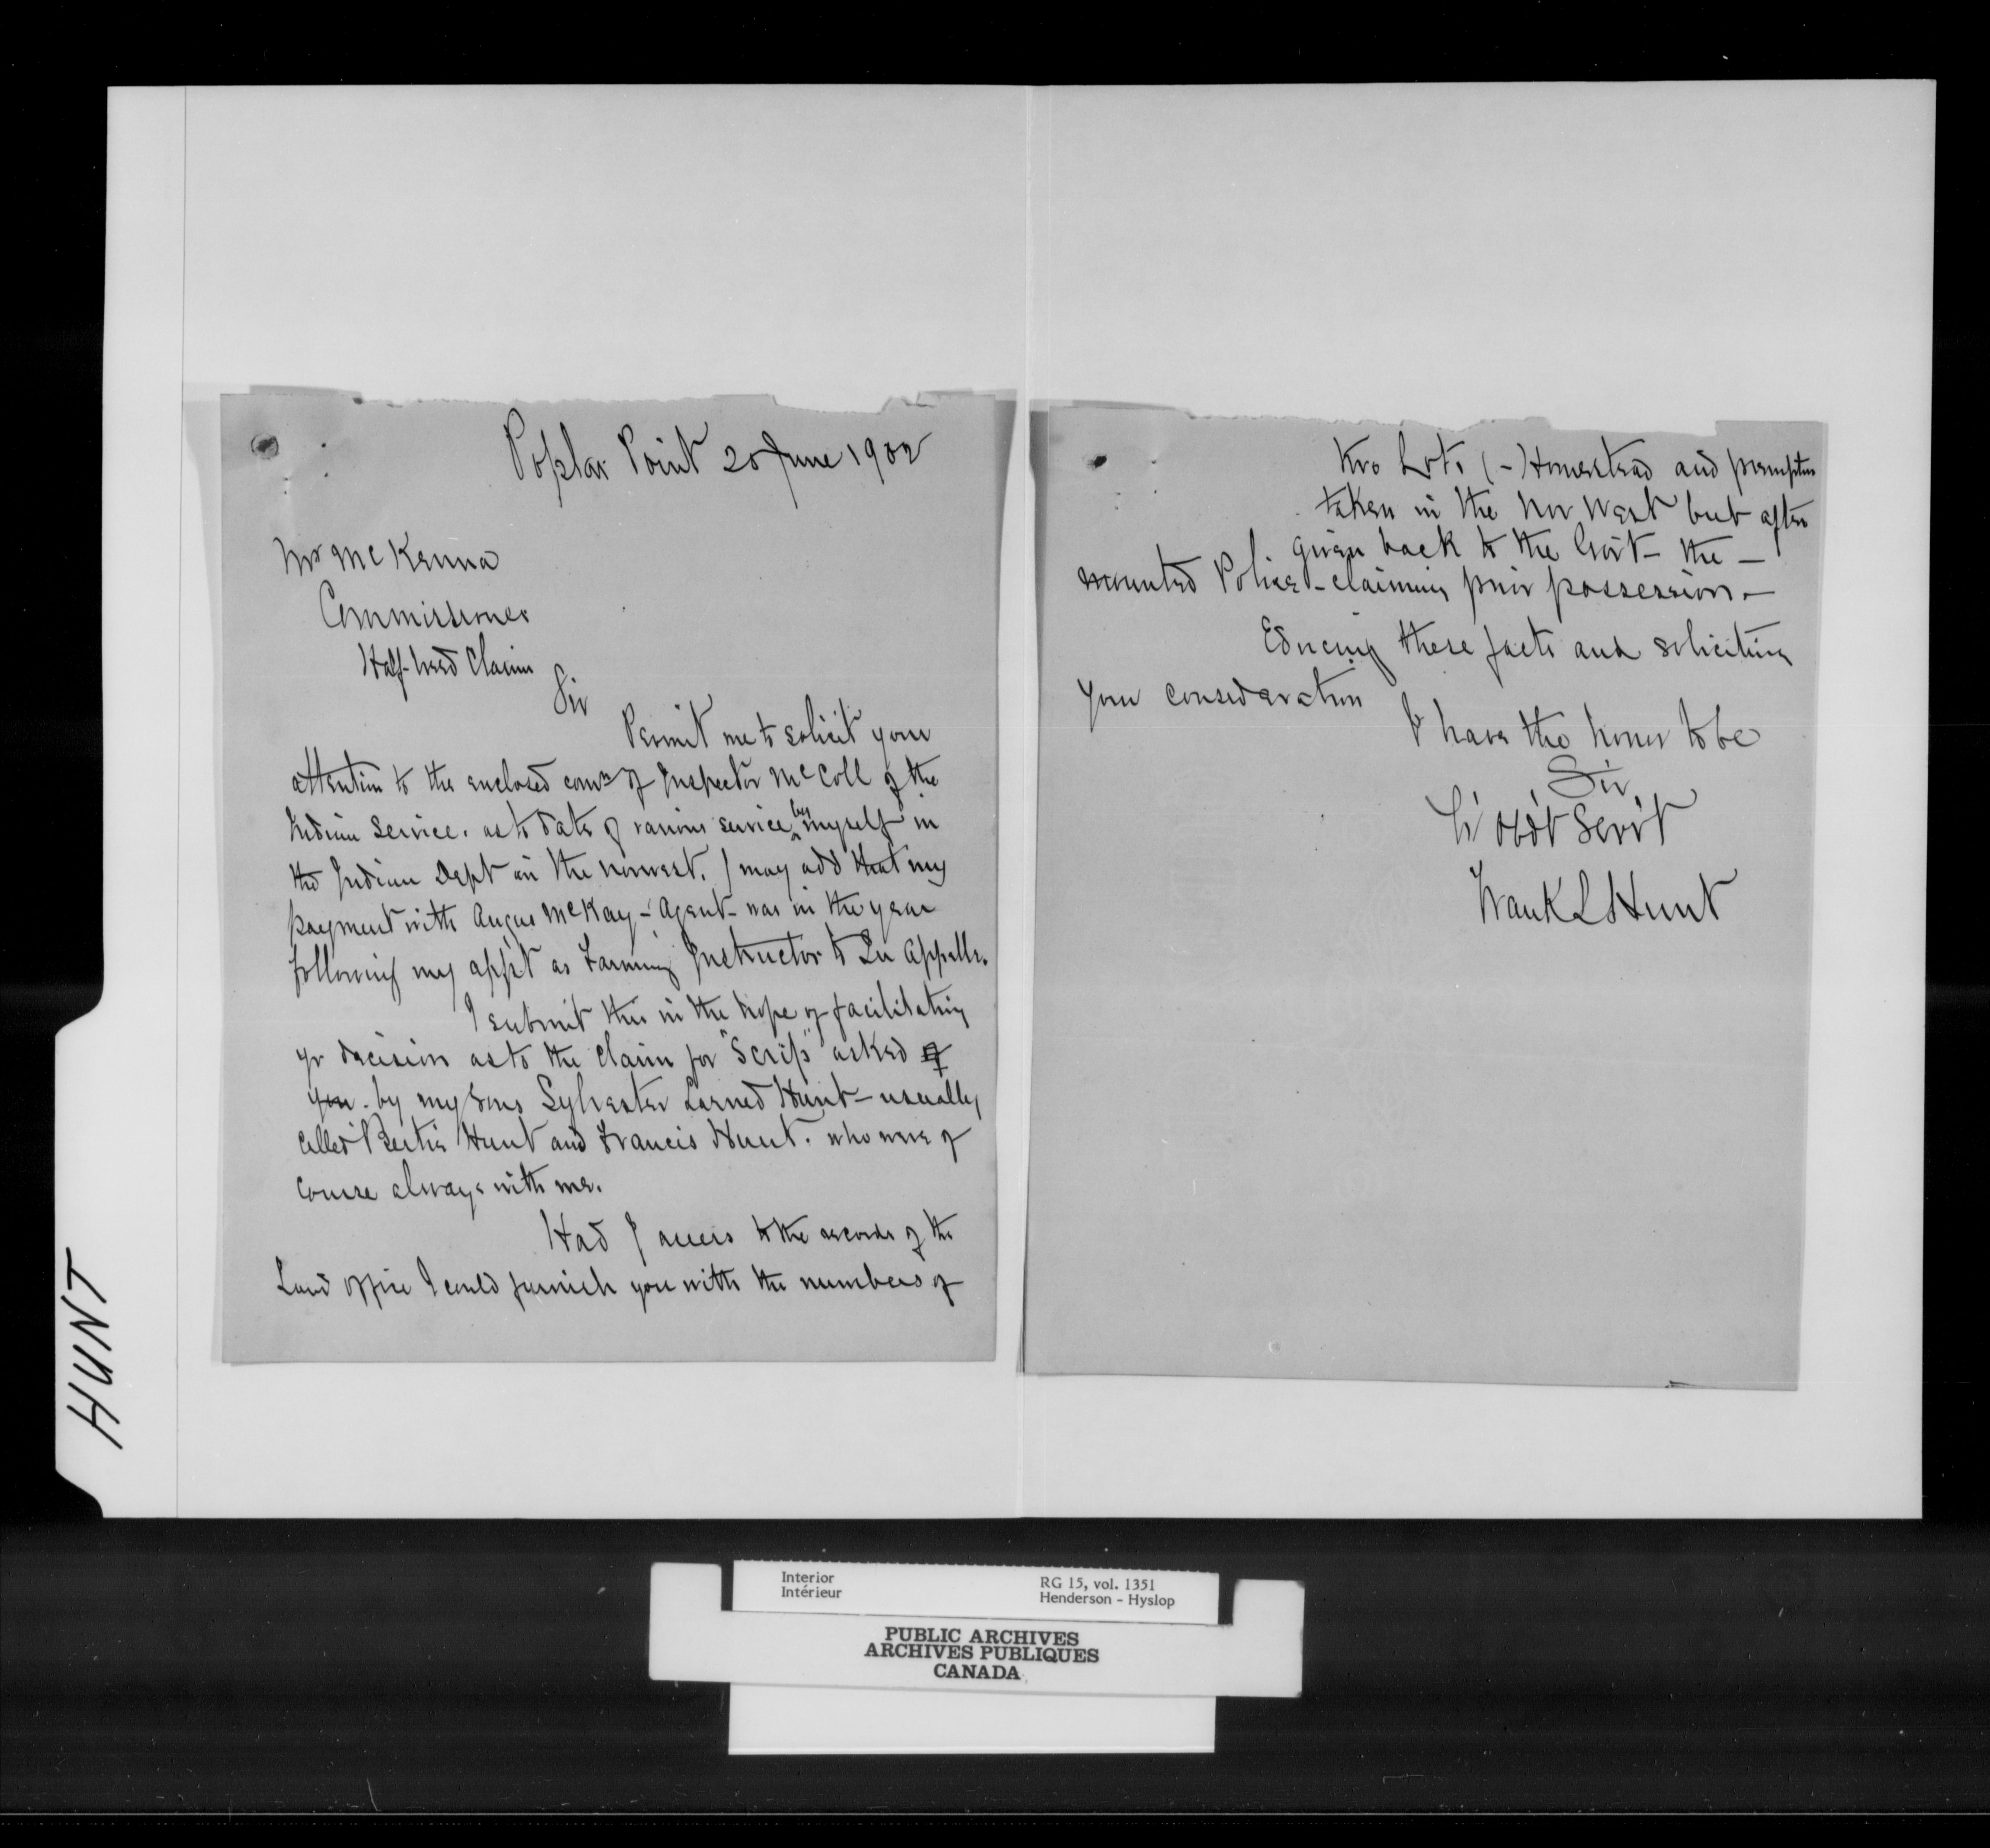 Poplar Point 20 June 1902
Mr McKenna
Commissioner
Half-breed Claims
Sir
Permit me to solicit your
attention to the enclosed comn of Inspector McColl of the
Indian Service. as to date of various service by myself in
the Indian Dept in the norwest. I may add that my
payment with Angus McKay - Agent - was in the year
following my app't as Farming Instructor to Qu Appelle.
I submit this in the hope of facilitating
yr decision as to the claim for "Scrip" asked of
you. by my sons Sylvester Larned Hunt - usually
called Bertie Hunt and Francis Hunt. who were of
course always with me.
Had I access to the records of the
Land office I could furnish you with the numbers of
two Lots (-) Homestead and premption
taken in the Nor West but after
given back to the Gov't - the -
mounted Police - claiming prior possession. -
Educing these facts and soliciting
your consideration
I have the honor to be
Sir
Yr Obdt Serv't
Frank L Hunt
HUNT
Interior
Intérieur
RG 15, vol. 1351
Henderson - Hyslop
PUBLIC ARCHIVES
ARCHIVES PUBLIQUES
CANADA